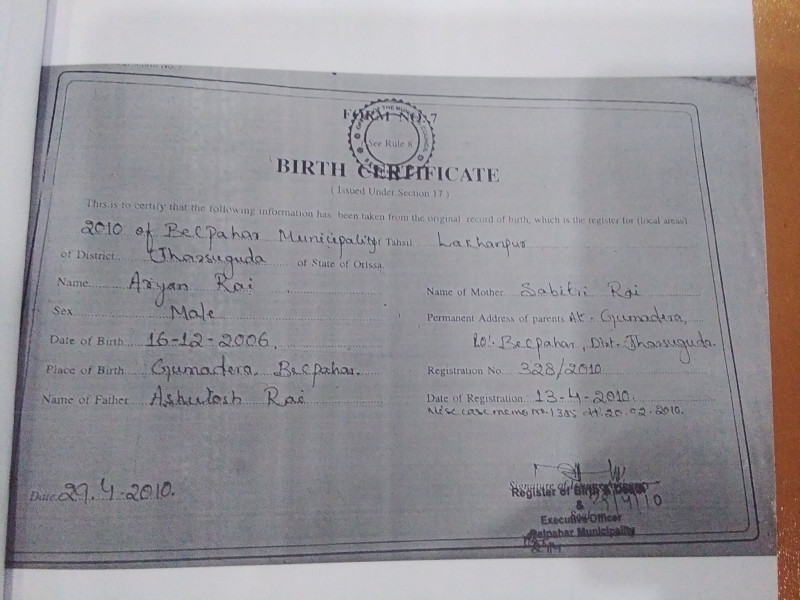 FORM NO. 7
See Rule 8
BIRTH CERTIFICATE
( Issued Under Section 17 )
This is to certify that the following information has been taken from the original record of birth, which is the register for (local areas)
2010 of Belpahar Municipality of Tahsil Lakhanpur
of District Jharsuguda of State of Orissa.
Name Aryan Rai
Sex Male
Date of Birth 16-12-2006.
Place of Birth Gumadera, Belpahar.
Name of Father Ashutosh Rai
Name of Mother Sabitri Rai
Permanent Address of parents At - Gumadera,
Po:- Belpahar, Dist.- Jharsuguda.
Registration No. 328/2010
Date of Registration 13-4-2010.
Misc case memo no. 1385 dt. 20.02.2010.
Date 29.4.2010.
Signature of
Register of Birth & Death
&
Executive Officer
Belpahar Municipality